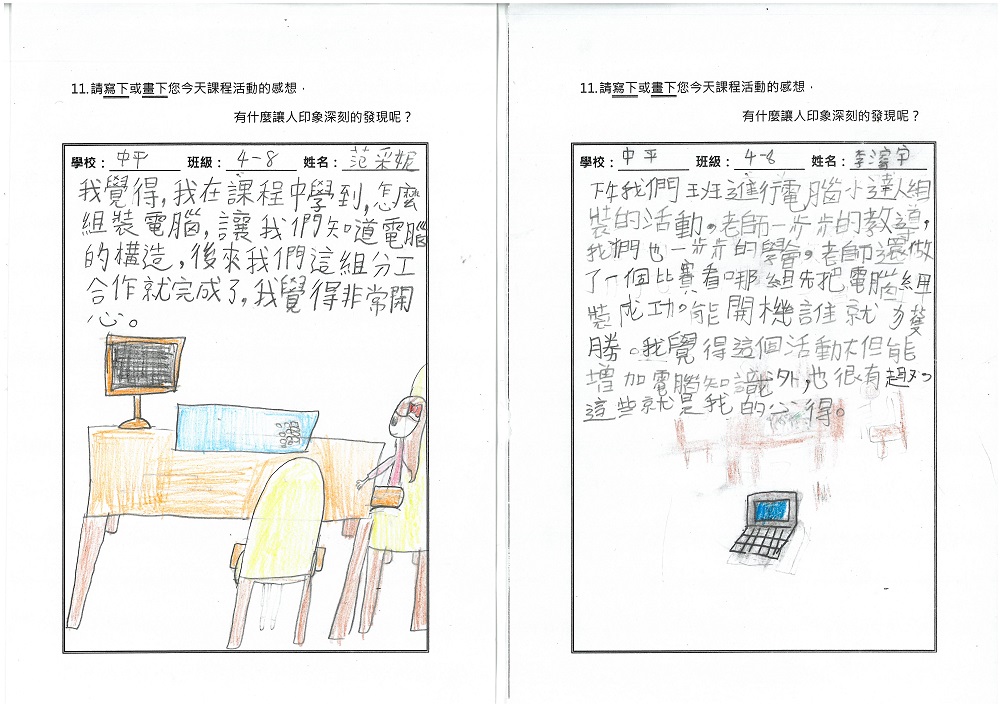 11.請寫下或畫下您今天課程活動的感想，
有什麼讓人印象深刻的發現呢？
學校：中平 班級：4-8 姓名：范采妮
我覺得，我在課程中學到，怎麼
組裝電腦，讓我們知道電腦
的構造，後來我們這組分工
合作就完成了，我覺得非常開
心。
11.請寫下或畫下您今天課程活動的感想，
有什麼讓人印象深刻的發現呢？
學校：中平 班級：4-8 姓名：李濬宇
我們班進行電腦小達人組
裝的活動。老師一步步的教導，
我們也一步步的學會。老師還做
了一個比賽看哪組先把電腦組
裝成功。能開機誰就獲
勝。我覺得這個活動不但能
增加電腦知識外，也很有趣。
這些就是我的心得。